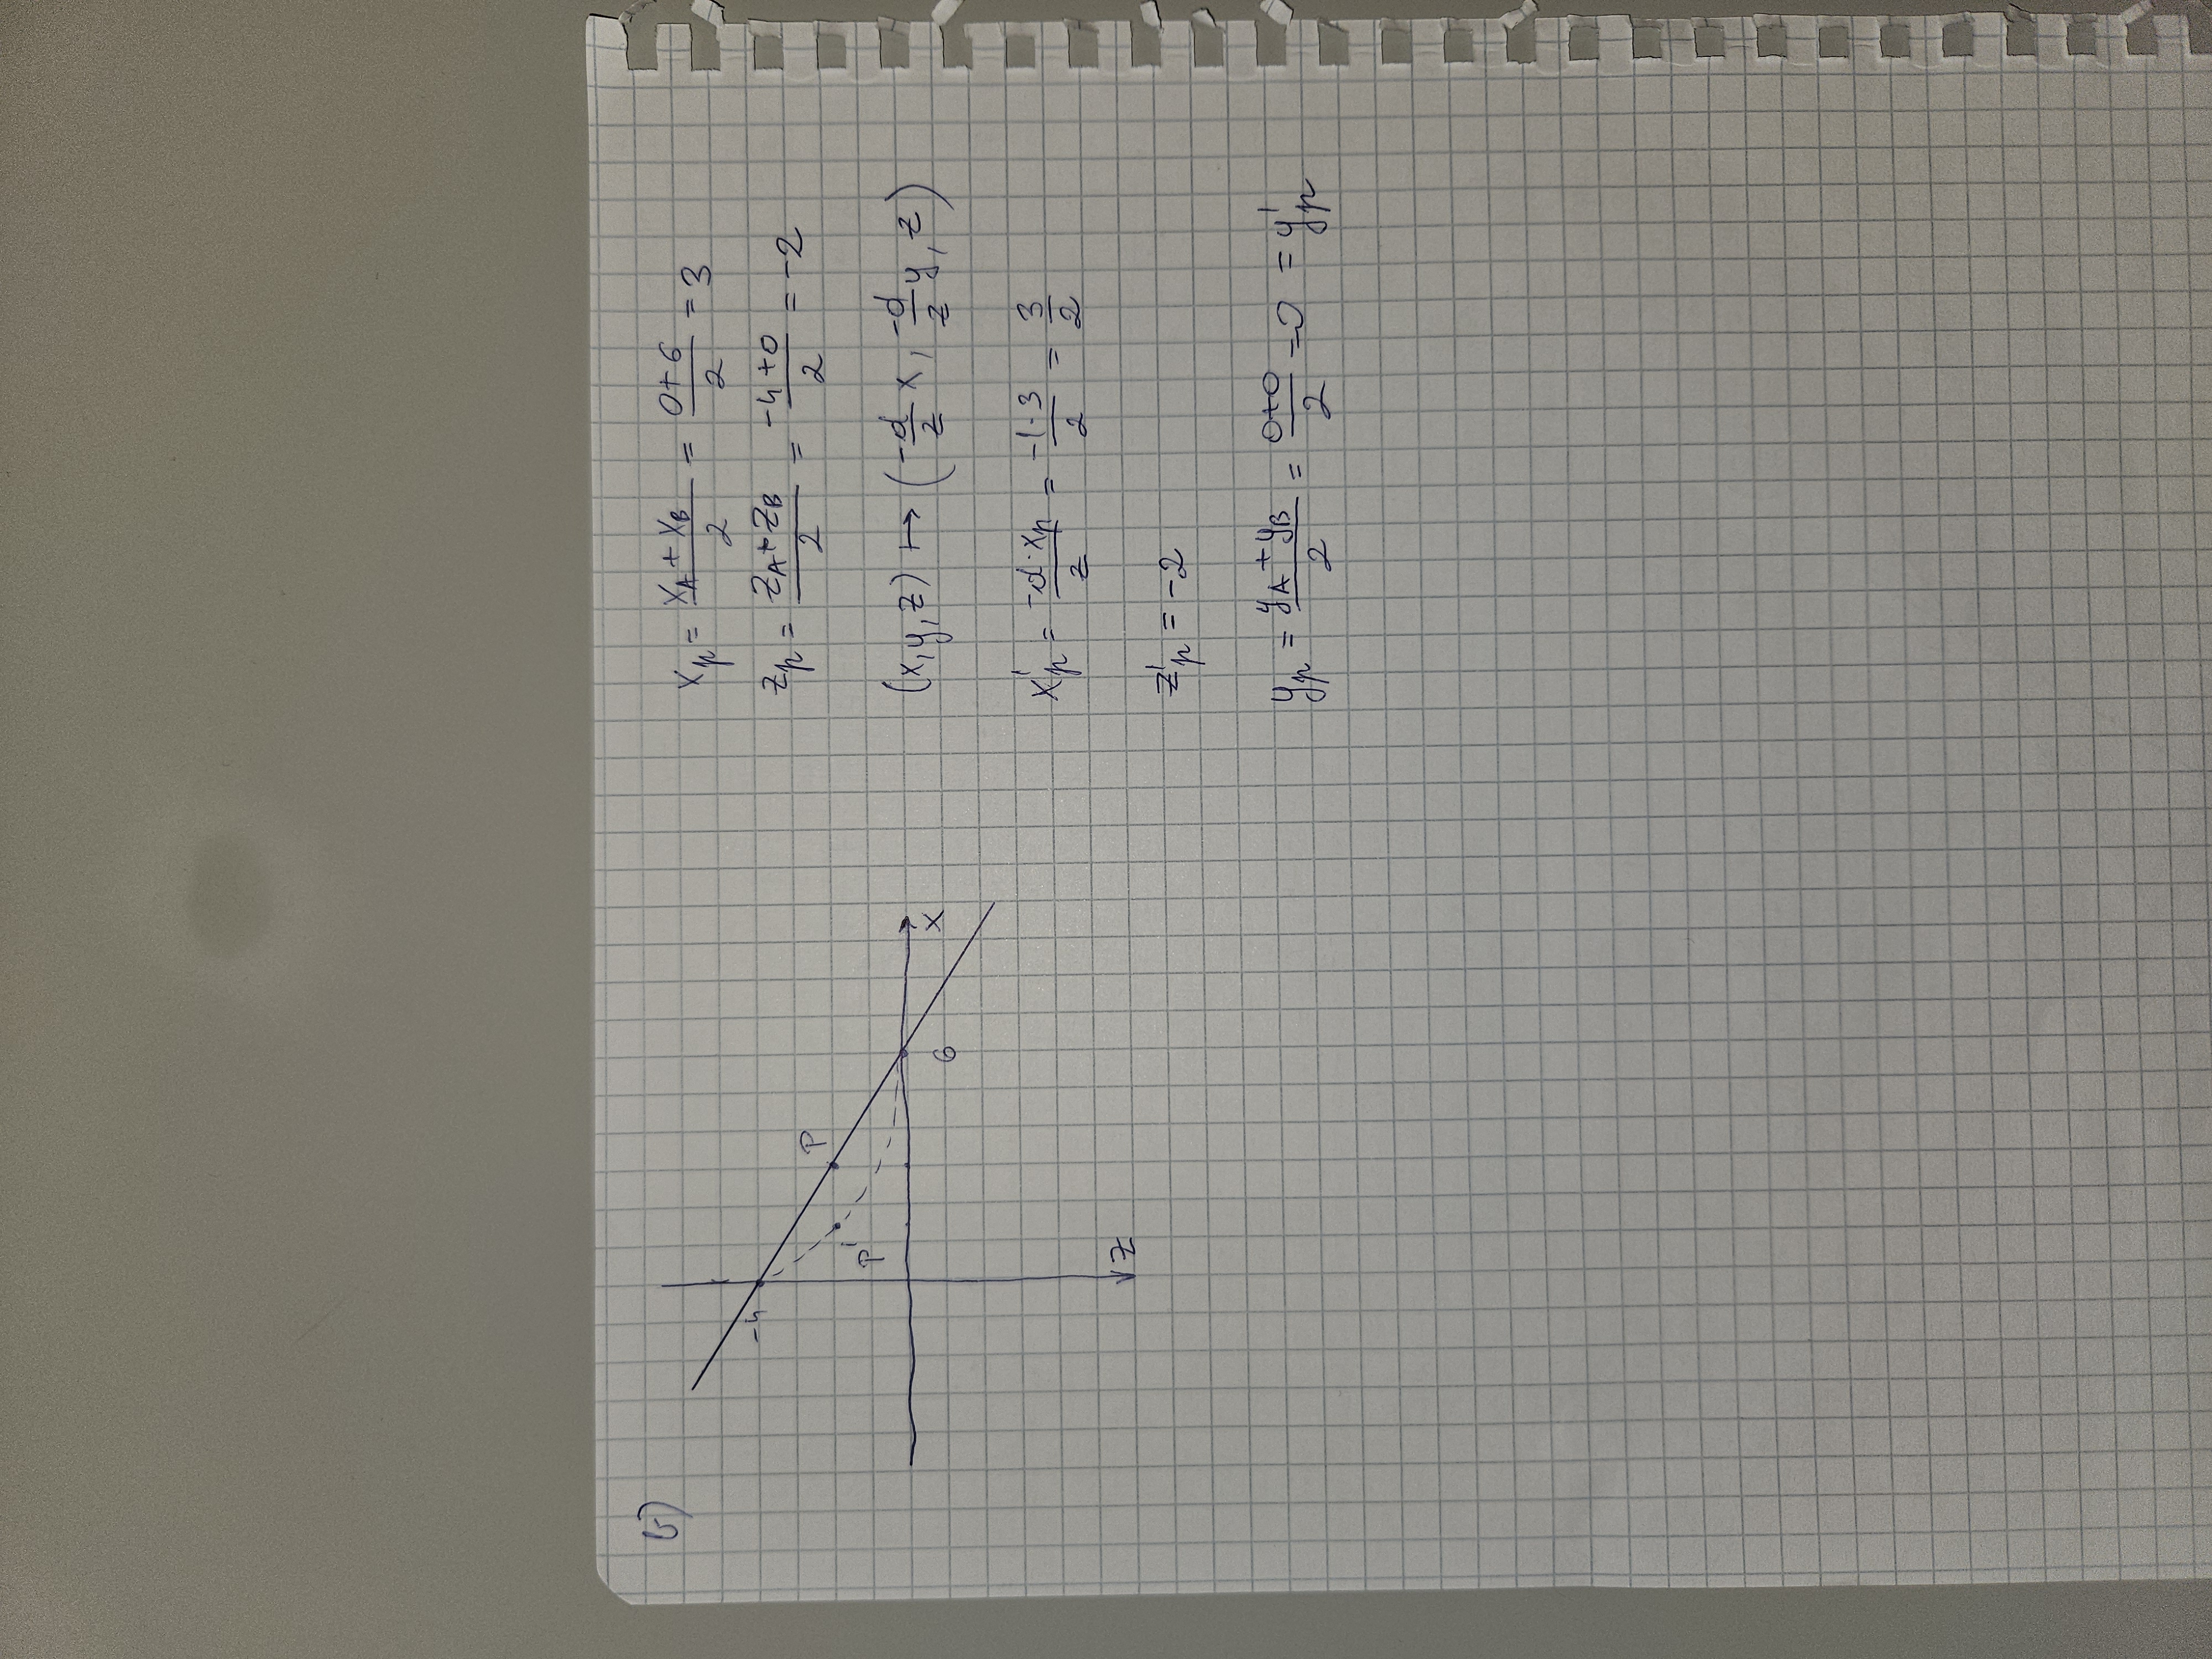 b)
-4
P
P'
6
X
Z
x_p = (x_A + x_B)/2 = (0+6)/2 = 3
z_p = (z_A + z_B)/2 = (-4+0)/2 = -2
(x, y, z) ↦ (-d/z x, -d/z y, z)
x'_p = (-d·x_p)/z = (-1·3)/2 = 3/2
z'_p = -2
y_p = (y_A + y_B)/2 = (0+0)/2 = 0 = y'_p